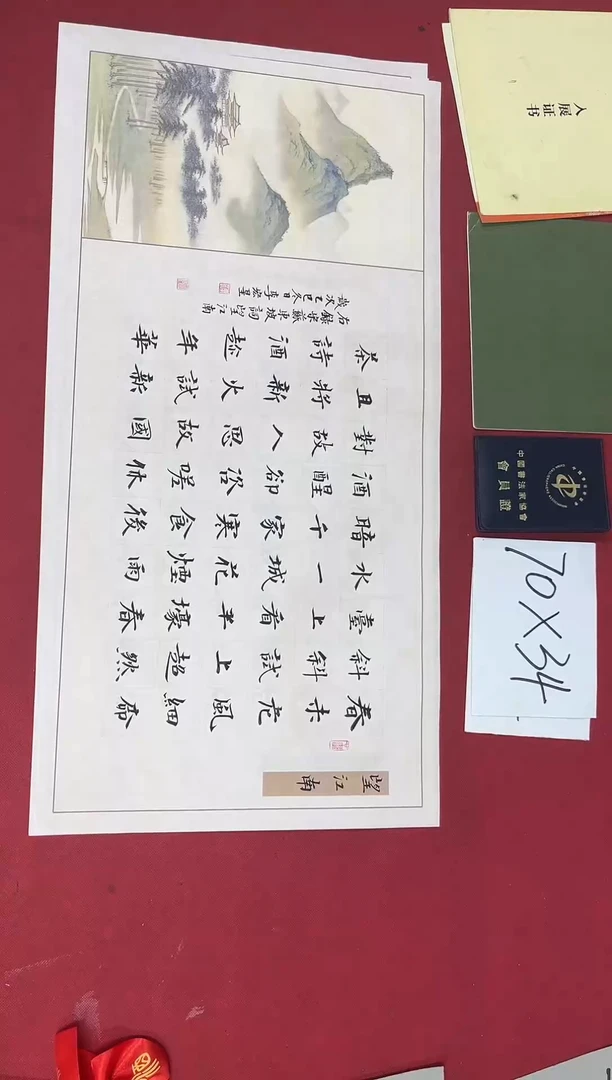 望江南
春未老風細柳
斜斜試上超然
臺上看半壕春
水一城花煙雨
暗千家寒食後
酒醒卻咨嗟休
對故人思故國
且將新火試新
茶詩酒趁年華
右錄宋蘇東坡詞望江南
歲次乙巳冬日李宏星
入展证书
中國書法家協會
會員證
70X34